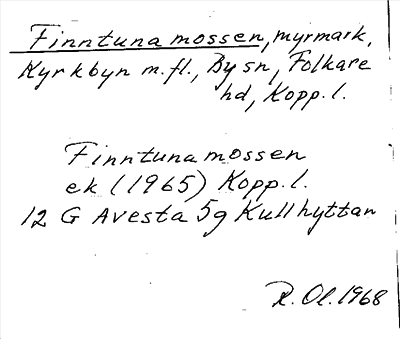 Finntunamossen, myrmark,
Kyrkbyn m.fl., By sn, Folkare
hd, Kopp.l.
Finntunamossen
ek (1965) Kopp.l.
12 G Avesta 5g Kullhyttan
R. Ol. 1968